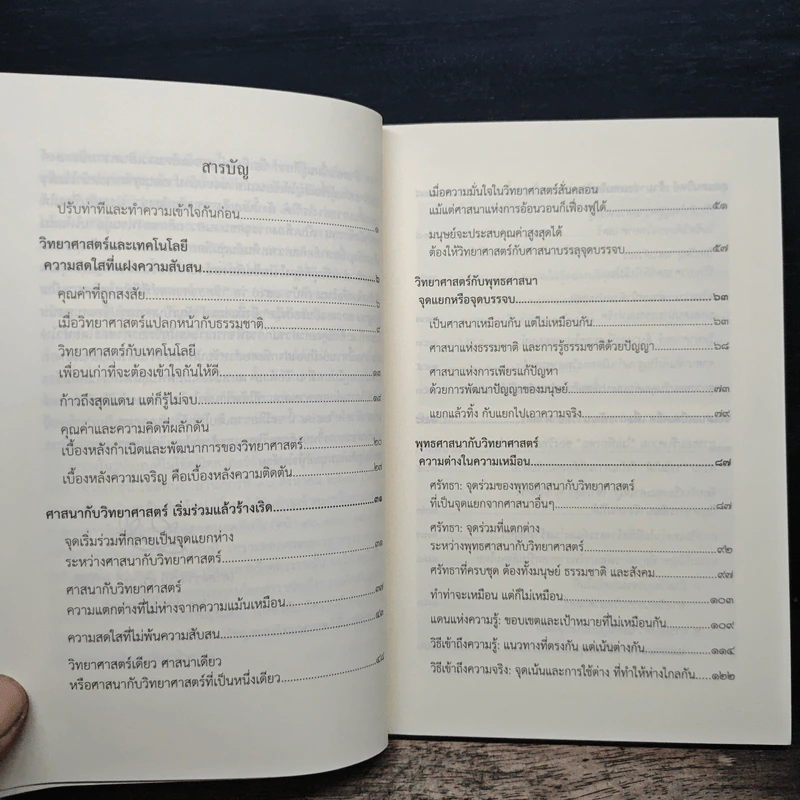 สารบัญ
ปรับท่าทีและทำความเข้าใจกันก่อน....................๑
วิทยาศาสตร์และเทคโนโลยี
ความสดใสที่แฝงความสับสน....................๖
คุณค่าที่ถูกสงสัย....................๖
เมื่อวิทยาศาสตร์แปลกหน้ากับธรรมชาติ....................๘
วิทยาศาสตร์กับเทคโนโลยี
เพื่อนเก่าที่จะต้องเข้าใจกันให้ดี....................๑๒
ก้าวถึงสุดแดน แต่ก็รู้ไม่จบ....................๑๕
คุณค่าและความคิดที่ผลักดัน
เบื้องหลังกำเนิดและพัฒนาการของวิทยาศาสตร์....................๒๐
เบื้องหลังความเจริญ คือเบื้องหลังความติดตัน....................๒๓
ศาสนากับวิทยาศาสตร์ เริ่มร่วมแล้วร้างเริด....................๓๑
จุดเริ่มร่วมที่กลายเป็นจุดแยกห่าง
ระหว่างศาสนากับวิทยาศาสตร์....................๓๑
ศาสนากับวิทยาศาสตร์
ความแตกต่างที่ไม่ห่างจากความแม้นเหมือน....................๓๗
ความสดใสที่ไม่พ้นความสับสน....................๔๒
วิทยาศาสตร์เดียว ศาสนาเดียว
หรือศาสนากับวิทยาศาสตร์ที่เป็นหนึ่งเดียว....................๔๘
เมื่อความมั่นใจในวิทยาศาสตร์สั่นคลอน
แม้แต่ศาสนาแห่งการอ้อนวอนก็เฟื่องฟูได้....................๕๑
มนุษย์จะประสบคุณค่าสูงสุดได้
ต้องให้วิทยาศาสตร์กับศาสนาบรรลุจุดบรรจบ....................๕๗
วิทยาศาสตร์กับพุทธศาสนา
จุดแยกหรือจุดบรรจบ....................๖๓
เป็นศาสนาเหมือนกัน แต่ไม่เหมือนกัน....................๖๓
ศาสนาแห่งธรรมชาติ และการรู้ธรรมชาติด้วยปัญญา....................๖๘
ศาสนาแห่งการเพียรแก้ปัญหา
ด้วยการพัฒนาปัญญาของมนุษย์....................๗๓
แยกแล้วทิ้ง กับแยกไปเอาความจริง....................๗๙
พุทธศาสนากับวิทยาศาสตร์
ความต่างในความเหมือน....................๘๗
ศรัทธา: จุดร่วมของพุทธศาสนากับวิทยาศาสตร์
ที่เป็นจุดแยกจากศาสนาอื่นๆ....................๘๗
ศรัทธา: จุดร่วมที่แตกต่าง
ระหว่างพุทธศาสนากับวิทยาศาสตร์....................๙๒
ศรัทธาที่ครบชุด ต้องทั้งมนุษย์ ธรรมชาติ และสังคม....................๙๗
ทำท่าจะเหมือน แต่ก็ไม่เหมือน....................๑๐๓
แดนแห่งความรู้: ขอบเขตและเป้าหมายที่ไม่เหมือนกัน....................๑๐๙
วิธีเข้าถึงความรู้: แนวทางที่ตรงกัน แต่เน้นต่างกัน....................๑๑๔
วิธีเข้าถึงความจริง: จุดเน้นและการใช้ต่าง ที่ทำให้ห่างไกลกัน.....๑๒๒